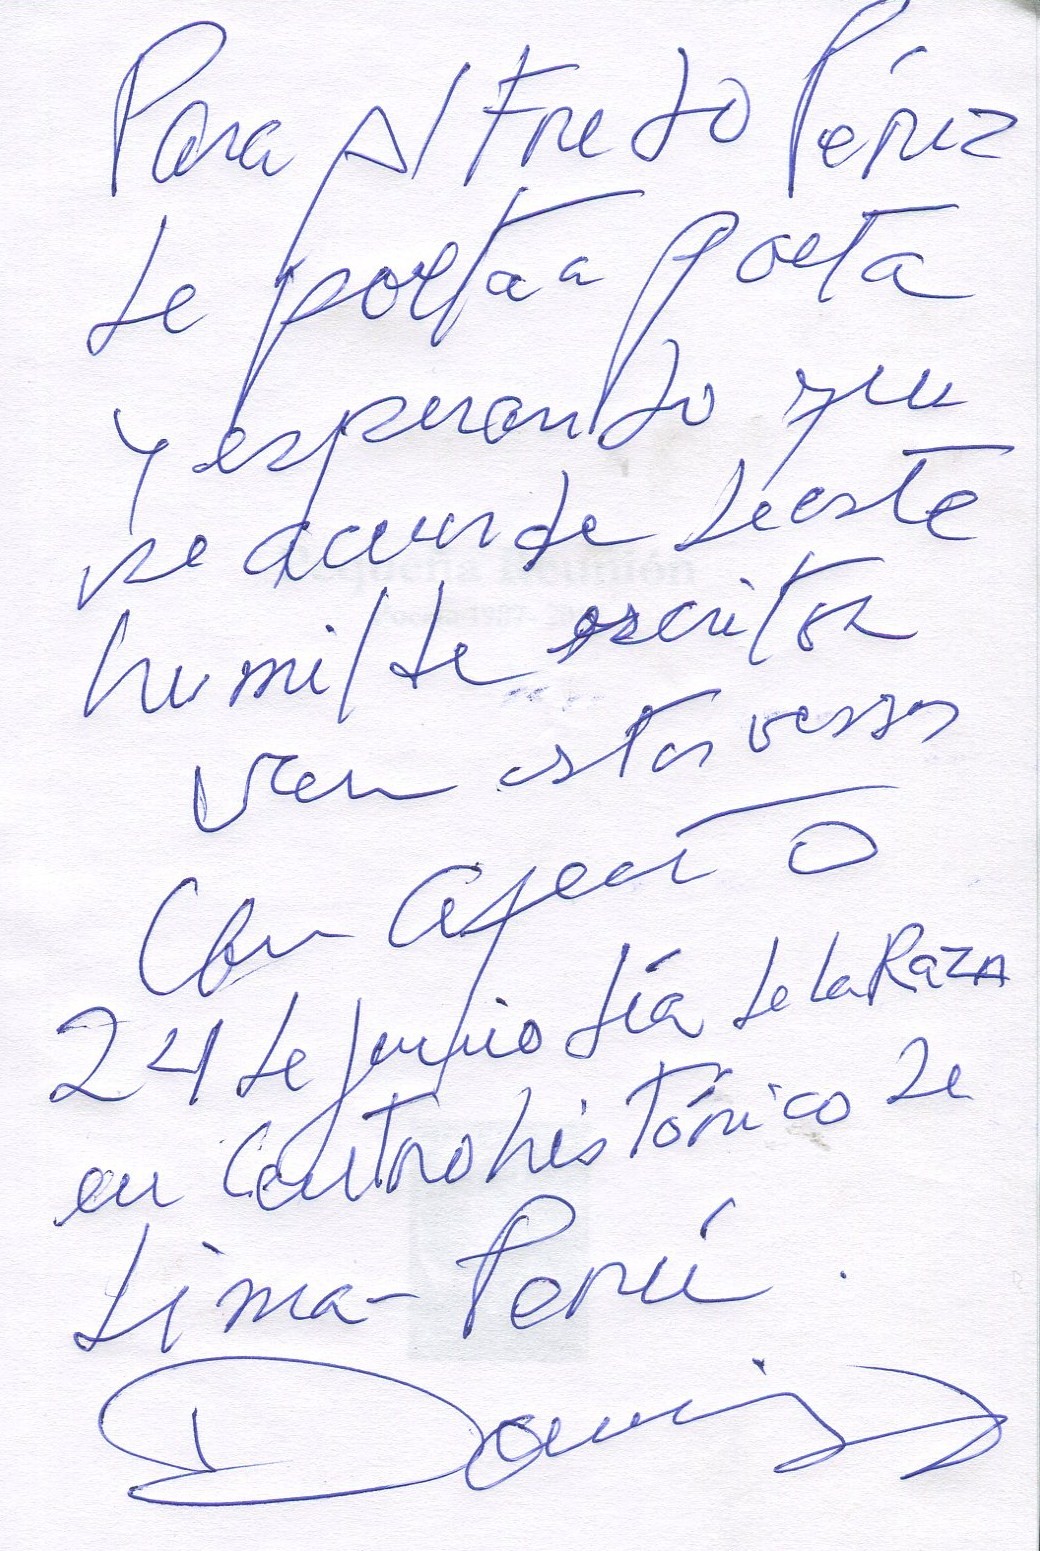 Para Alfredo Pérez
de poeta a poeta
y esperando que
se acuerde de este
humilde escritor
van estos versos
Con afecto
24 de junio día de la Raza
en Centro histórico de
Lima - Perú.
Pequeña Reunión
Poesía 1987-